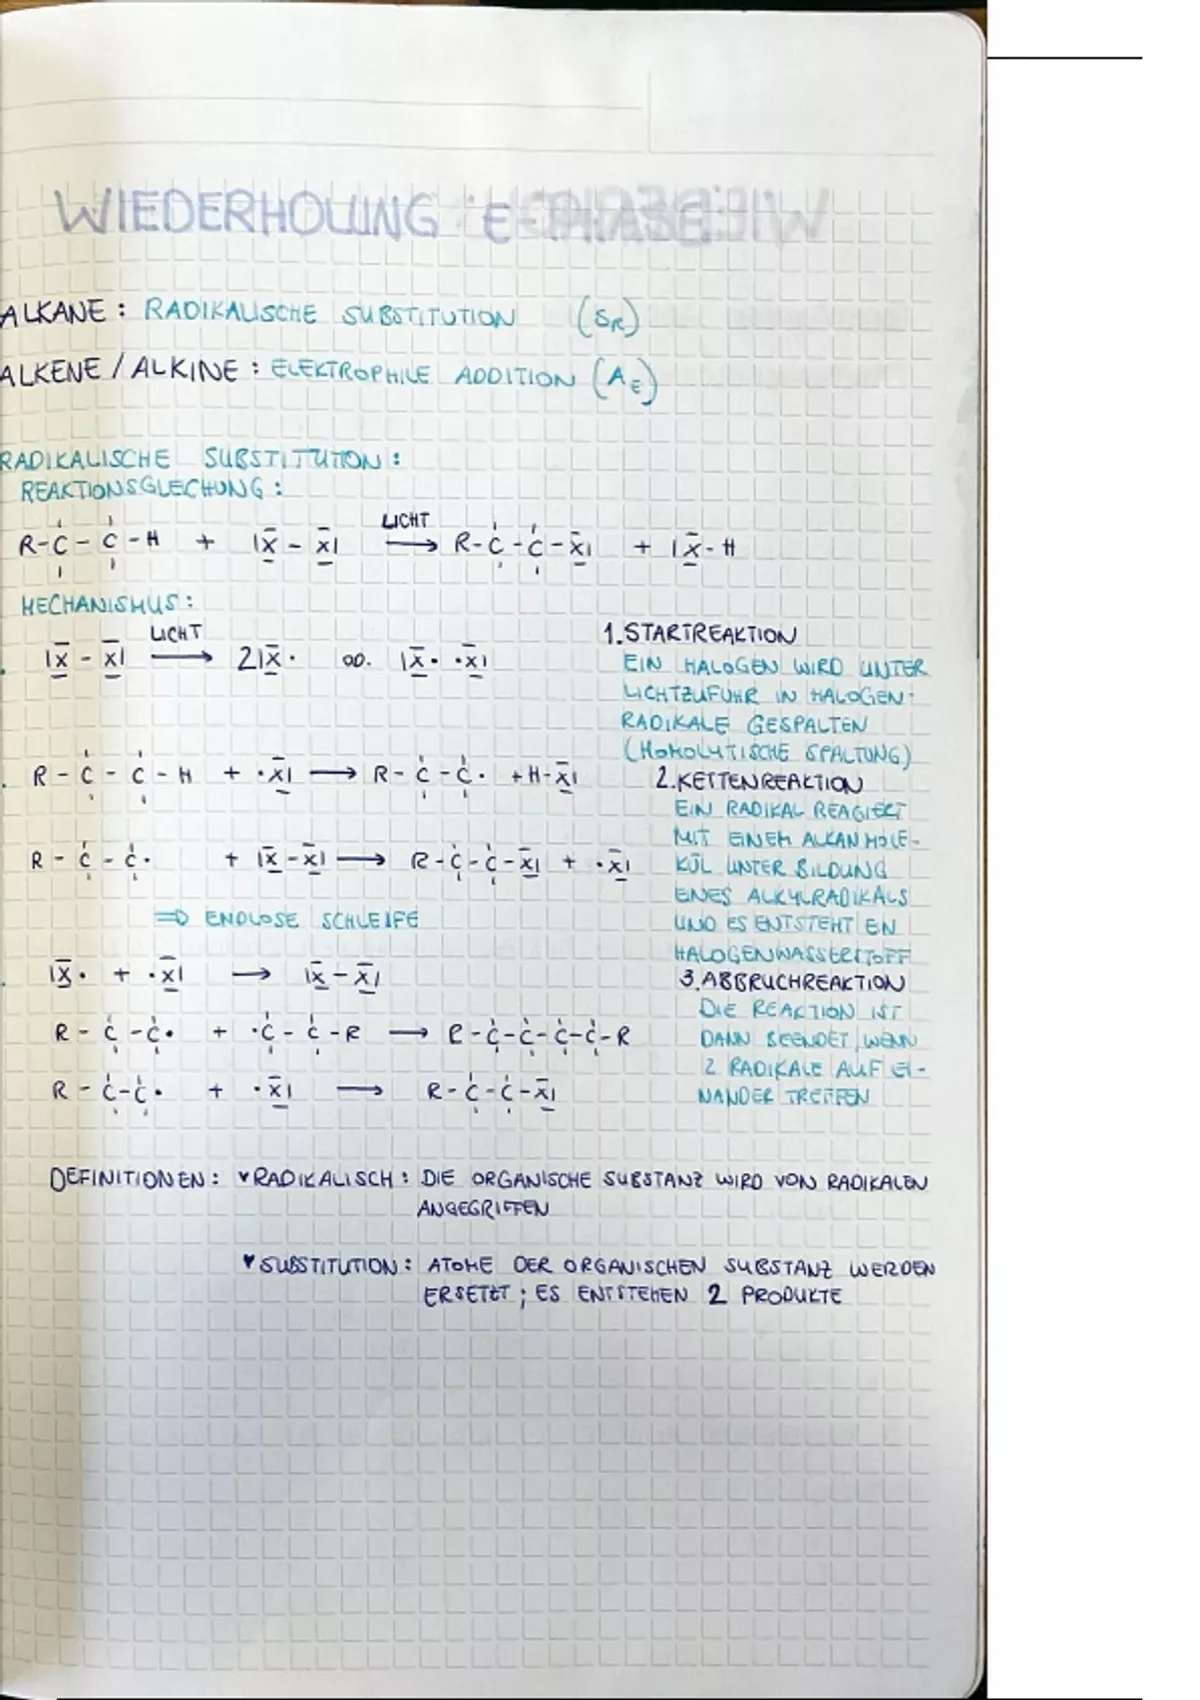 WIEDERHOLUNG E-PHASE:
ALKANE: RADIKALISCHE SUBSTITUTION (SR)
ALKENE / ALKINE: ELEKTROPHILE ADDITION (AE)
RADIKALISCHE SUBSTITUTION:
REAKTIONSGLECHUNG:
LICHT
R-C-C-H + |X-X| → R-C-C-X| + |X-H
MECHANISMUS:
LICHT
|X-X| → 2|X· OD. |X· ·X|
1. STARTREAKTION
EIN HALOGEN WIRD UNTER
LICHTZUFUHR IN HALOGEN-
RADIKALE GESPALTEN
(HOMOLYTISCHE SPALTUNG)
R-C-C-H + ·X| → R-C-C· + H-X|
R-C-C· + |X-X| → R-C-C-X| + ·X|
⇒ ENDLOSE SCHLEIFE
2. KETTENREAKTION
EIN RADIKAL REAGIERT
MIT EINEM ALKANMOLE-
KÜL UNTER BILDUNG
EINES ALKYLRADIKALS
UND ES ENTSTEHT EN
HALOGENWASSERSTOFF
|X· + ·X| → |X-X|
R-C-C· + ·C-C-R → R-C-C-C-C-R
R-C-C· + ·X| → R-C-C-X|
3. ABBRUCHREAKTION
DIE REAKTION IST
DANN BEENDET, WENN
2 RADIKALE AUF EI-
NANDER TREFFEN
DEFINITIONEN: ♥ RADIKALISCH: DIE ORGANISCHE SUBSTANZ WIRD VON RADIKALEN
ANGEGRIFFEN
♥ SUBSTITUTION: ATOME DER ORGANISCHEN SUBSTANZ WERDEN
ERSETZT; ES ENTSTEHEN 2 PRODUKTE